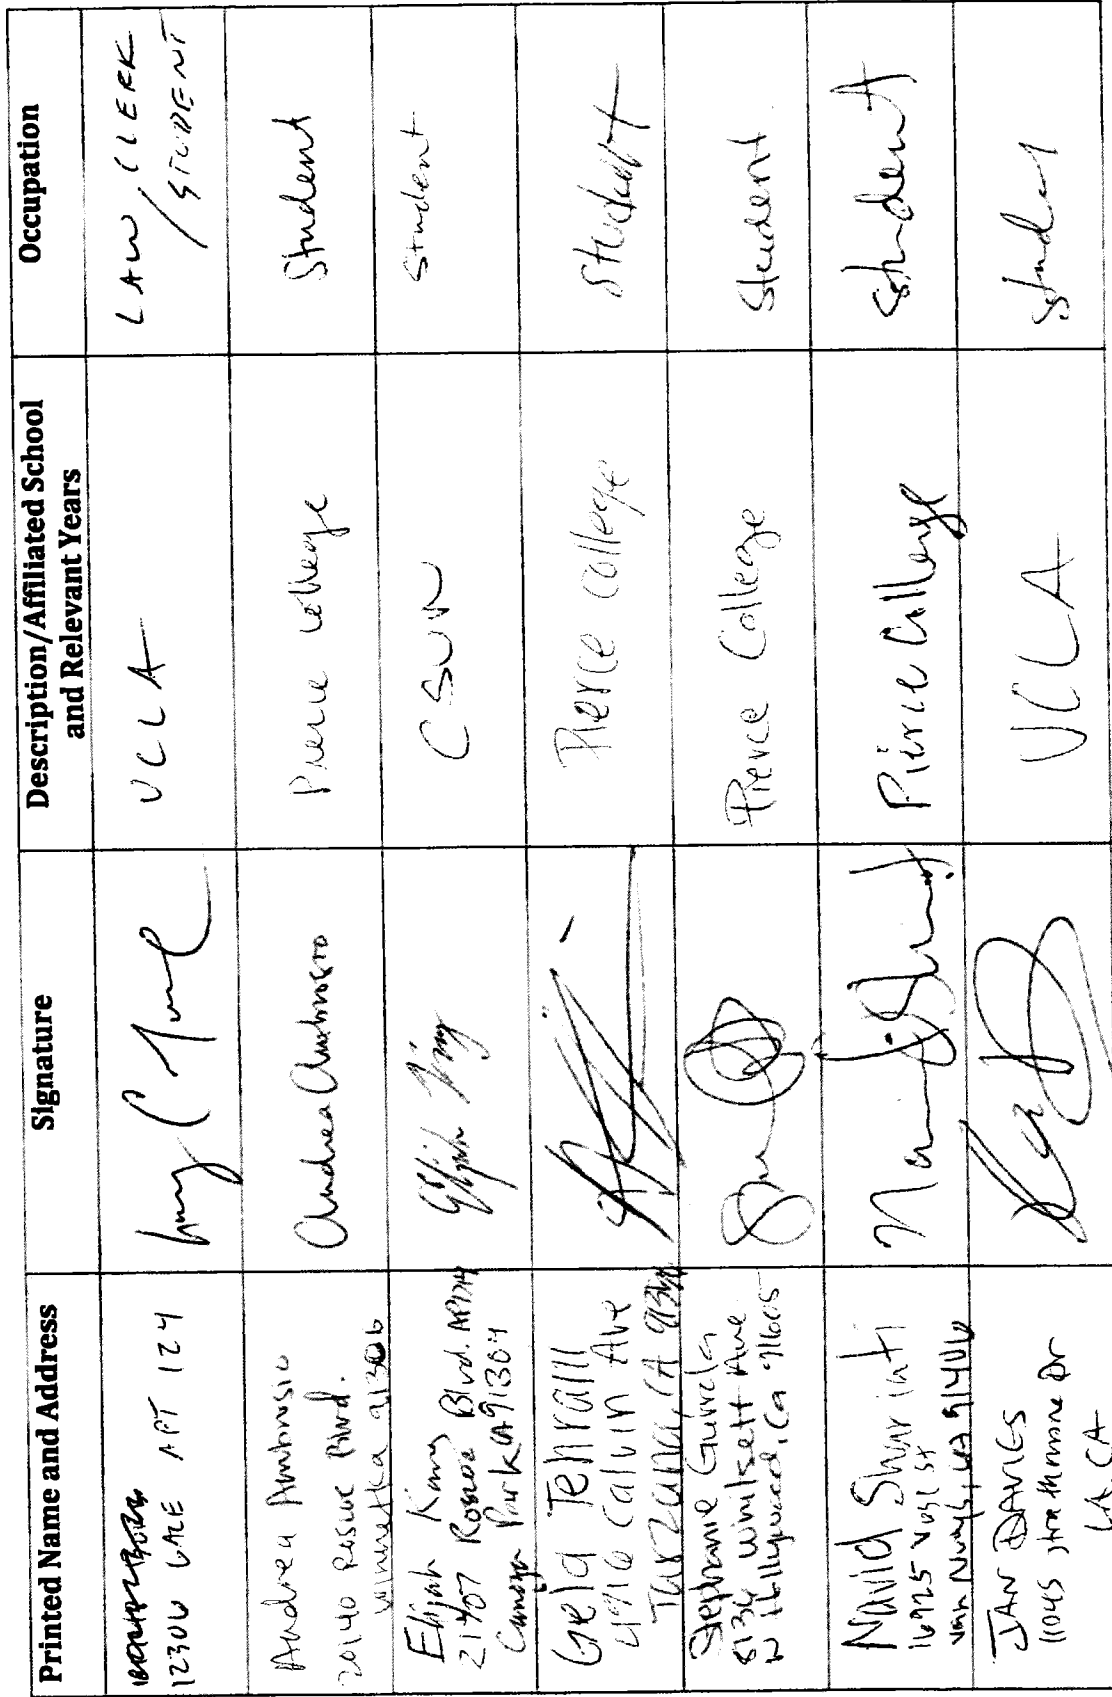 Printed Name and Address
Signature
Description/Affiliated School
and Relevant Years
Occupation
APT 124
UCLA
LAW CLERK
/STUDENT
Andrea Ambrosio
20140 Blvd.
Winnetka 91306
Andrea Ambrosio
Pierce College
Student
Elijah
21407 Roscoe Blvd.
Canoga Park CA 91304
Elijah
CSUN
Student
Gela Tehrani
4910 Calvin Ave
Tarzana, CA
Pierce College
Student
Stephanie
8134 Wilksett Ave
N Hollywood, Ca 91605
Pierce College
Student
Navid
16925 St
Van Nuys, CA 91406
Pierce College
Student
JAN DAVIES
11045 Strathmore Dr
LA, CA
UCLA